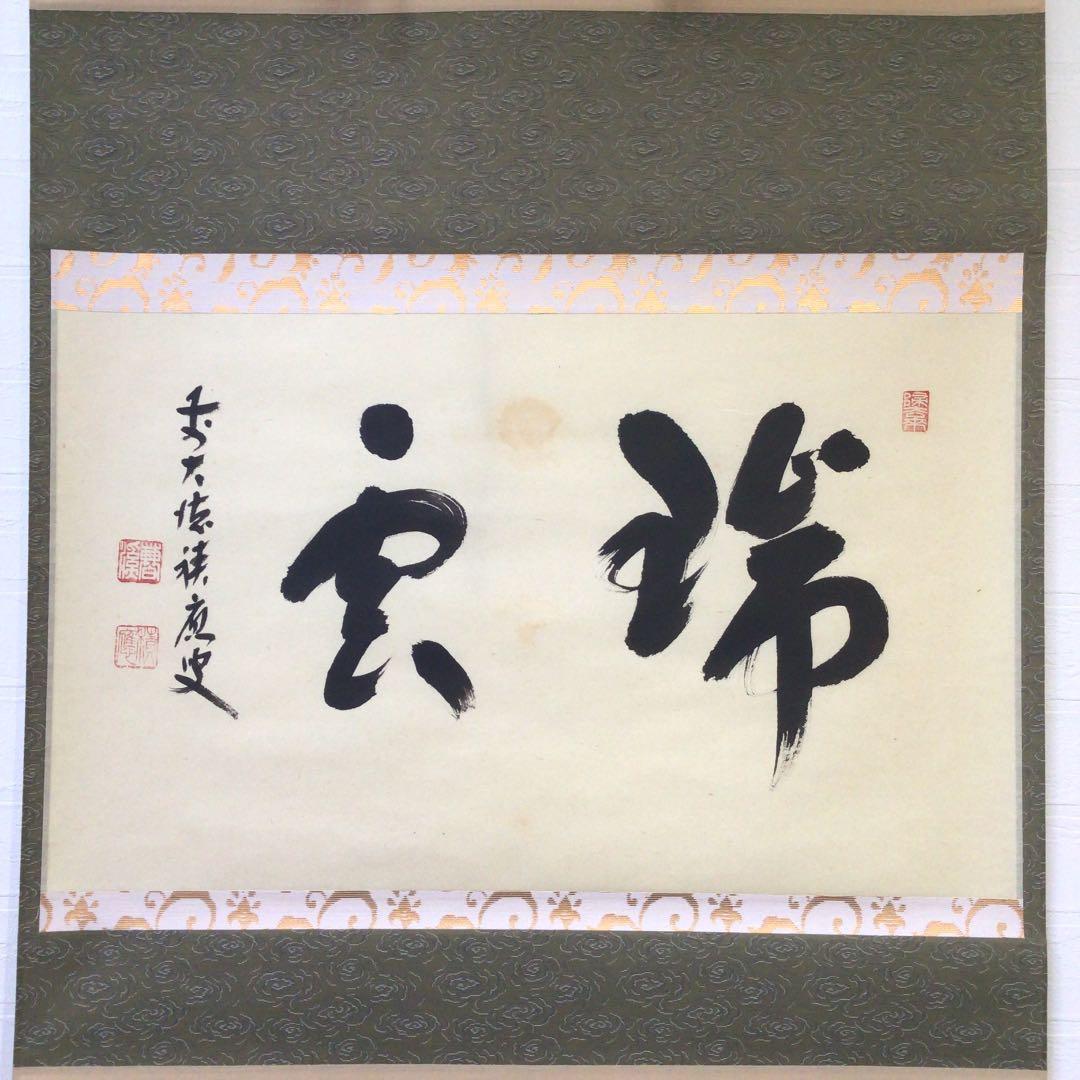 瑞雲
前大徳積應叟